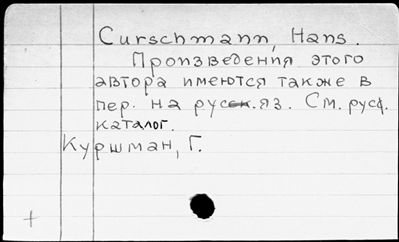 Curschmann, Hans.
Произведения этого
автора имеются также в
пер. на русск. яз. См. русс.
каталог.
Куршман, Г.